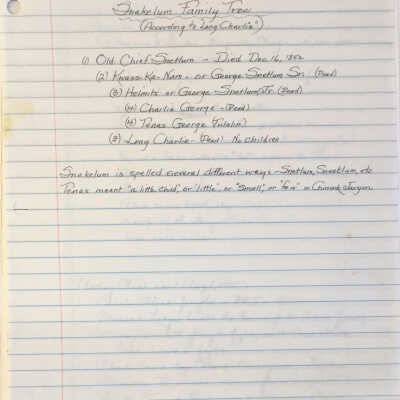 Snakelum Family Tree
(According to "Long Charlie")
(1) Old Chief Snetlum - Died Dec. 16, 1852
(2) Kwass-Ka-Nam - or George Snetlum Sr. (Dead)
(3) Helmits or George Snetlum, Jr. (Dead)
(4) Charlie George - (Dead)
(4) Tenas George (Tulalip)
(3) Long Charlie - (Dead) No children
Snakelum is spelled several different ways - Snetlum, Sneatlum, etc
Tenas meant "a little chief, or "little" or "small", or "few" in Chinook Jargon.